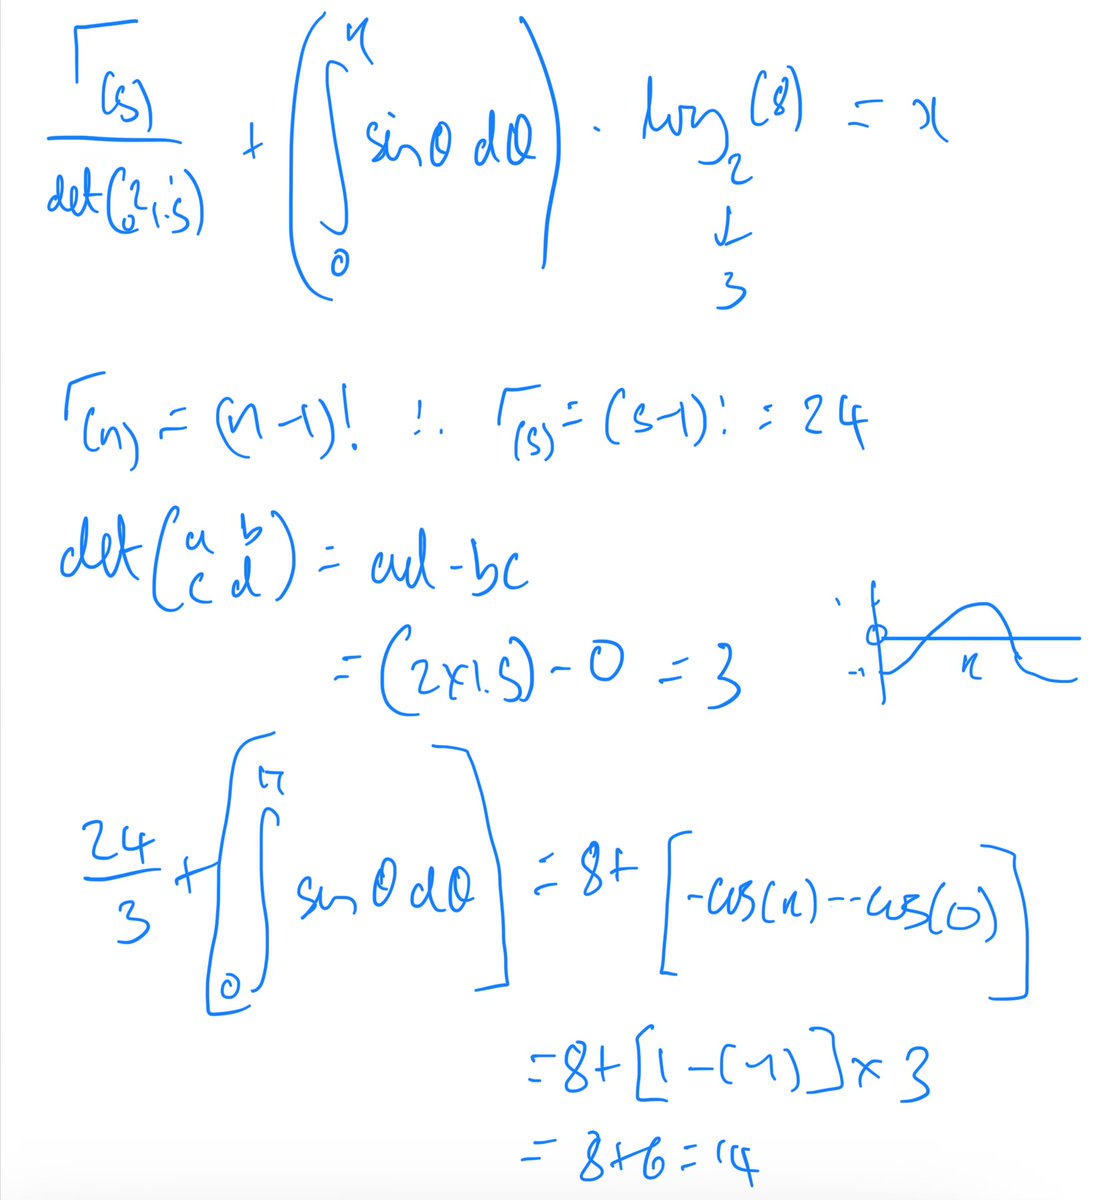 Γ(5)/det(2 , 0 1.5) + (∫₀^π sinθ dθ) · log₂(8) = x
↓
3
Γ(n) = (n-1)! ∴ Γ(5) = (5-1)! = 24
det(a b c d) = ad - bc
= (2×1.5) - 0 = 3
0 -1 π
24/3 + [∫₀^π sinθ dθ] = 8+ [-cos(π) - -cos(0)]
= 8+ [1-(-1)] × 3
= 8+6 = 14